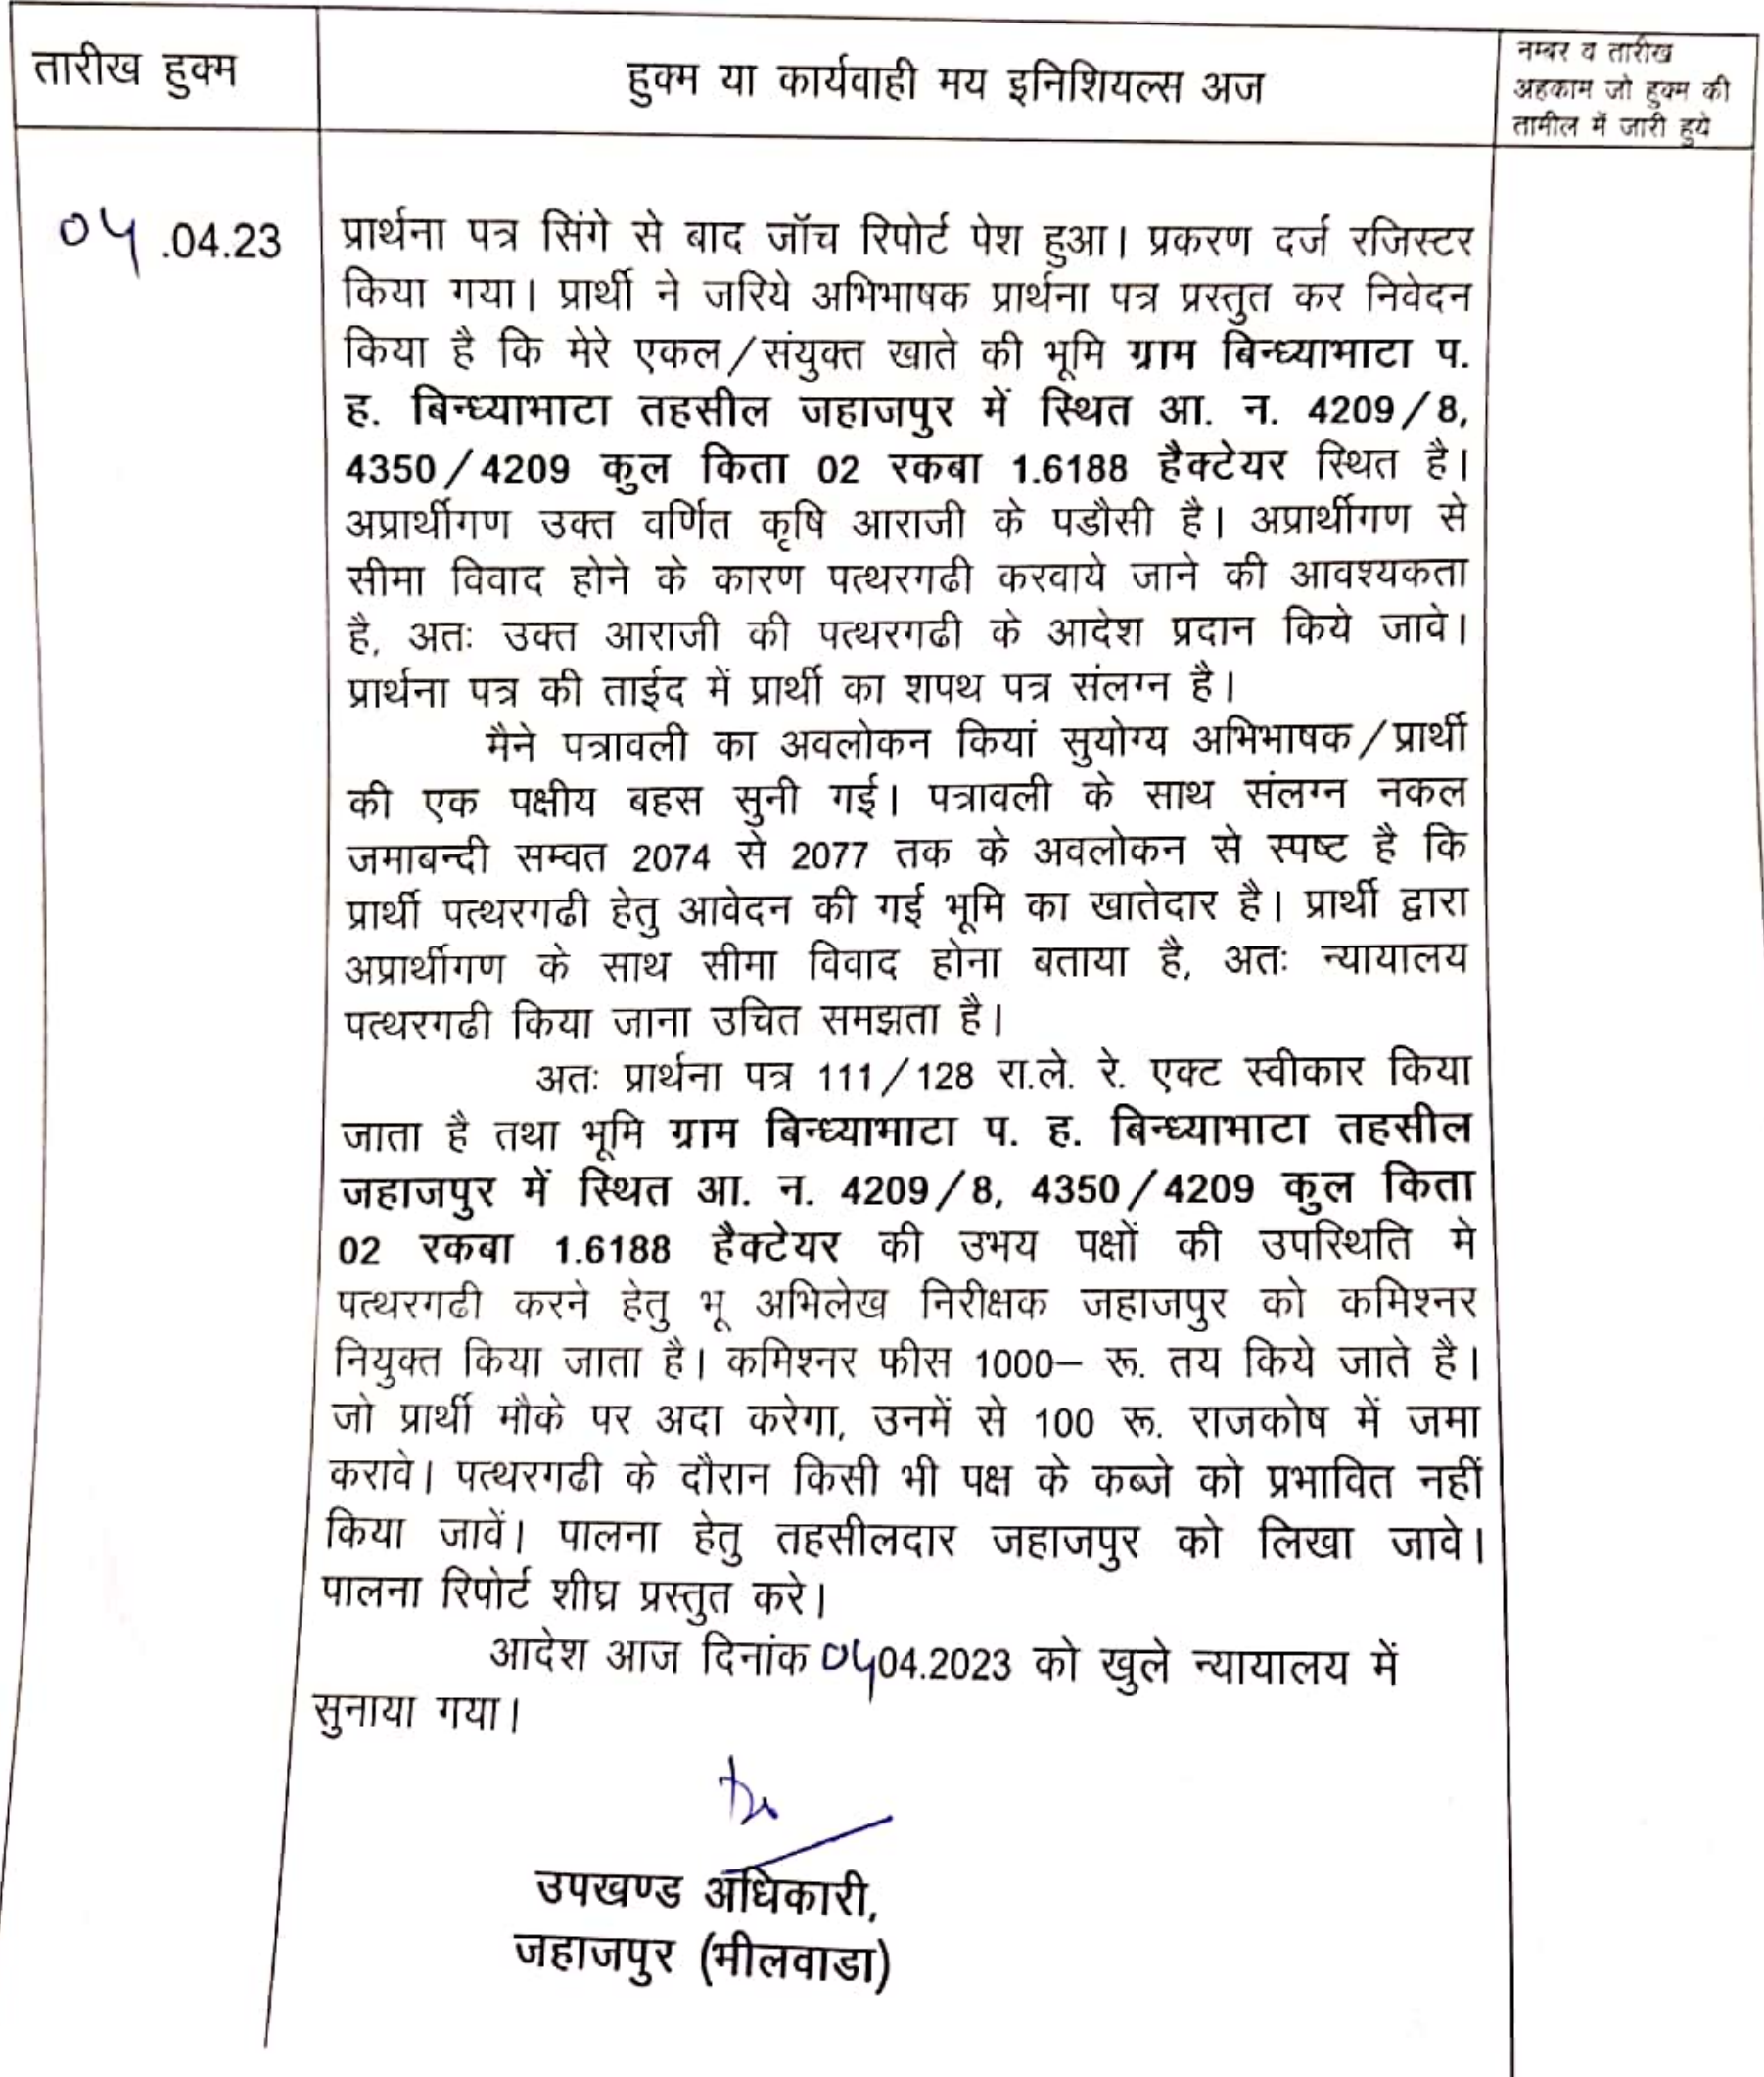 तारीख हुक्म
हुक्म या कार्यवाही मय इनिशियल्स अज
नम्बर व तारीख
अहकाम जो हुक्म की
तामील में जारी हुये
04.04.23
प्रार्थना पत्र सिंगे से बाद जॉच रिपोर्ट पेश हुआ। प्रकरण दर्ज रजिस्टर
किया गया। प्रार्थी ने जरिये अभिभाषक प्रार्थना पत्र प्रस्तुत कर निवेदन
किया है कि मेरे एकल/संयुक्त खाते की भूमि ग्राम बिन्ध्याभाटा प.
ह. बिन्ध्याभाटा तहसील जहाजपुर में स्थित आ. न. 4209/8,
4350/4209 कुल किता 02 रकबा 1.6188 हैक्टेयर स्थित है।
अप्रार्थीगण उक्त वर्णित कृषि आराजी के पडौसी है। अप्रार्थीगण से
सीमा विवाद होने के कारण पत्थरगढी करवाये जाने की आवश्यकता
है, अतः उक्त आराजी की पत्थरगढी के आदेश प्रदान किये जावे।
प्रार्थना पत्र की ताईद में प्रार्थी का शपथ पत्र संलग्न है।
मैने पत्रावली का अवलोकन कियां सुयोग्य अभिभाषक/प्रार्थी
की एक पक्षीय बहस सुनी गई। पत्रावली के साथ संलग्न नकल
जमाबन्दी सम्वत 2074 से 2077 तक के अवलोकन से स्पष्ट है कि
प्रार्थी पत्थरगढी हेतु आवेदन की गई भूमि का खातेदार है। प्रार्थी द्वारा
अप्रार्थीगण के साथ सीमा विवाद होना बताया है, अतः न्यायालय
पत्थरगढी किया जाना उचित समझता है।
अतः प्रार्थना पत्र 111/128 रा.ले. रे. एक्ट स्वीकार किया
जाता है तथा भूमि ग्राम बिन्ध्याभाटा प. ह. बिन्ध्याभाटा तहसील
जहाजपुर में स्थित आ. न. 4209/8, 4350/4209 कुल किता
02 रकबा 1.6188 हैक्टेयर की उभय पक्षों की उपस्थिति मे
पत्थरगढी करने हेतु भू अभिलेख निरीक्षक जहाजपुर को कमिश्नर
नियुक्त किया जाता है। कमिश्नर फीस 1000– रू. तय किये जाते है।
जो प्रार्थी मौके पर अदा करेगा, उनमें से 100 रू. राजकोष में जमा
करावे। पत्थरगढी के दौरान किसी भी पक्ष के कब्जे को प्रभावित नहीं
किया जावें। पालना हेतु तहसीलदार जहाजपुर को लिखा जावे।
पालना रिपोर्ट शीघ्र प्रस्तुत करे।
आदेश आज दिनांक 0404.2023 को खुले न्यायालय में
सुनाया गया।
उपखण्ड अधिकारी,
जहाजपुर (भीलवाडा)